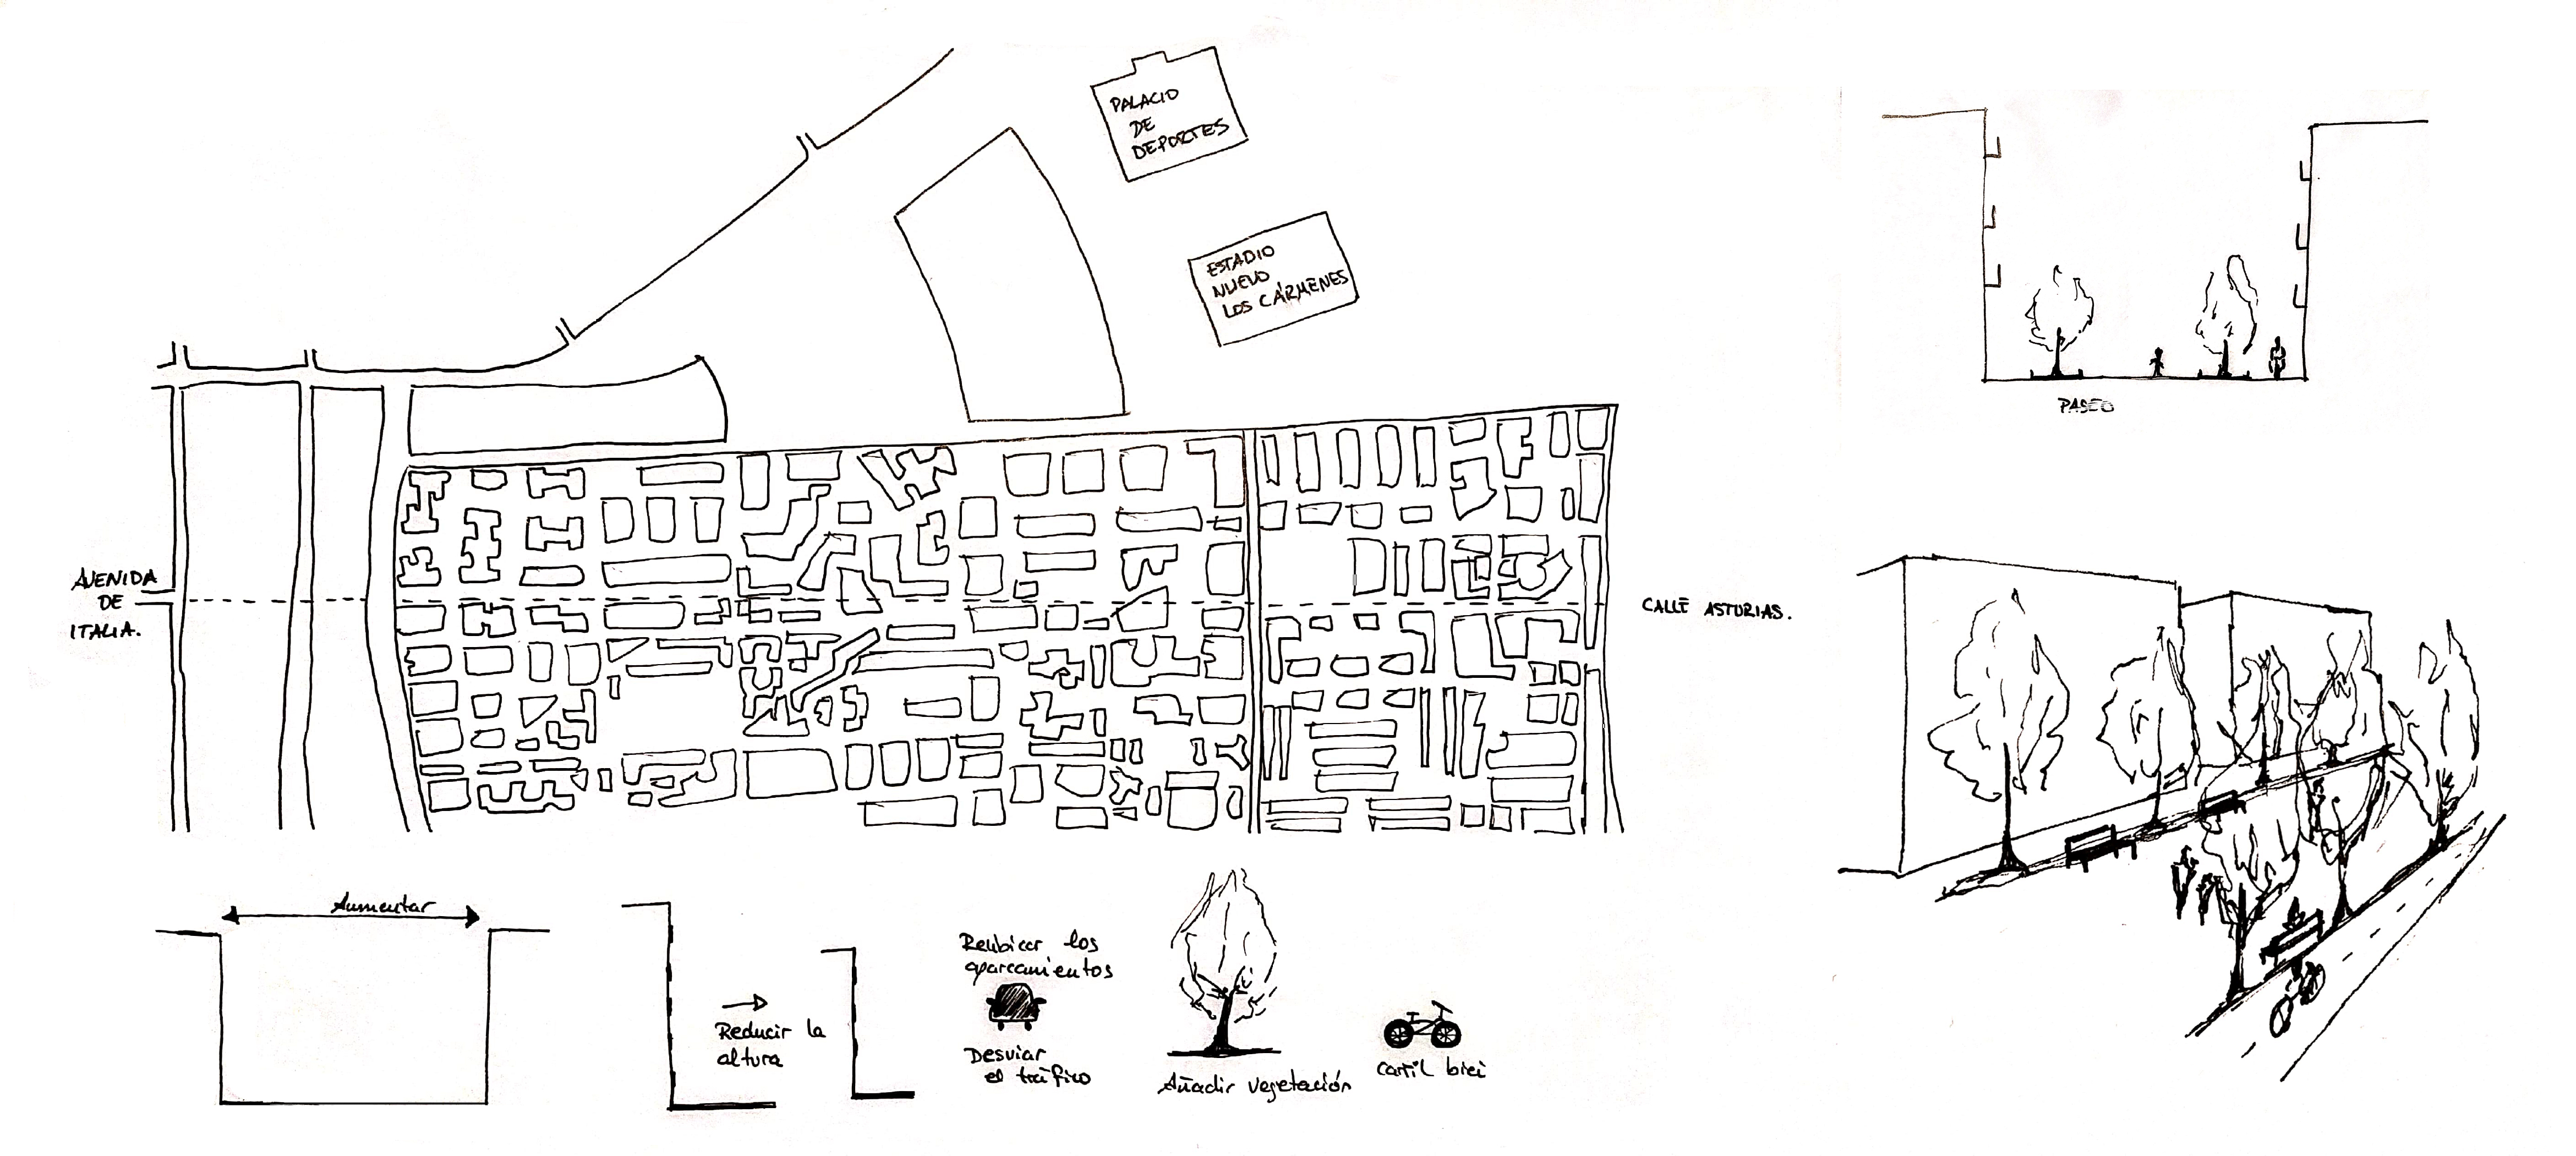 PALACIO
DE
DEPORTES
ESTADIO
NUEVO
LOS CÁRMENES
AVENIDA
DE
ITALIA.
CALLE ASTURIAS.
PASEO
Aumentar
Reducir la
altura
Reubicar los
aparcamientos
Desviar
el tráfico
Añadir vegetación
carril bici